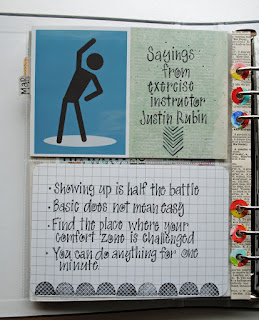 Sayings
from
exercise
instructor
Justin Rubin
• Showing up is half the battle
• Basic does not mean easy
• Find the place where your
comfort zone is challenged
• You can do anything for one
minute.